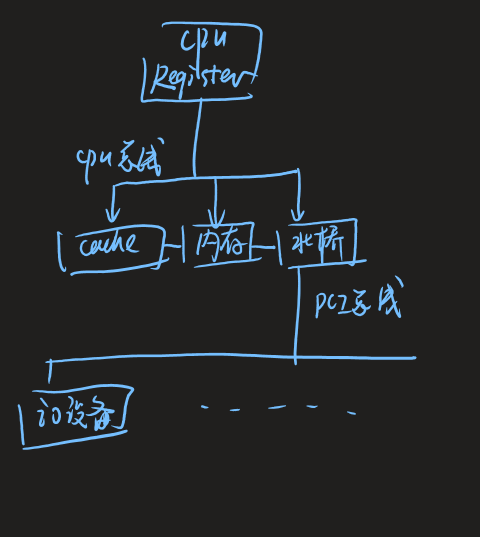 CPU
Register
cpu总线
cache
内存
北桥
PCI总线
io设备